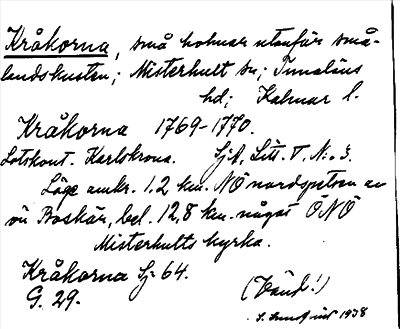 Kråkorna, små holmar utanför små-
landskusten; Misterhult sn; Tunaläns
hd; Kalmar l.
Kråkorna 1769-1770.
Lotskont. Karlskrona. Sj.A, Litt. T. N:o 3.
Läge omkr. 1,2 km. NÖ nordspetsen av
ön Boskär, bel. 12,8 km. något ÖNÖ
Misterhults kyrka.
Kråkorna Sj. 64.
G. 29.
(Vänd!)
1938